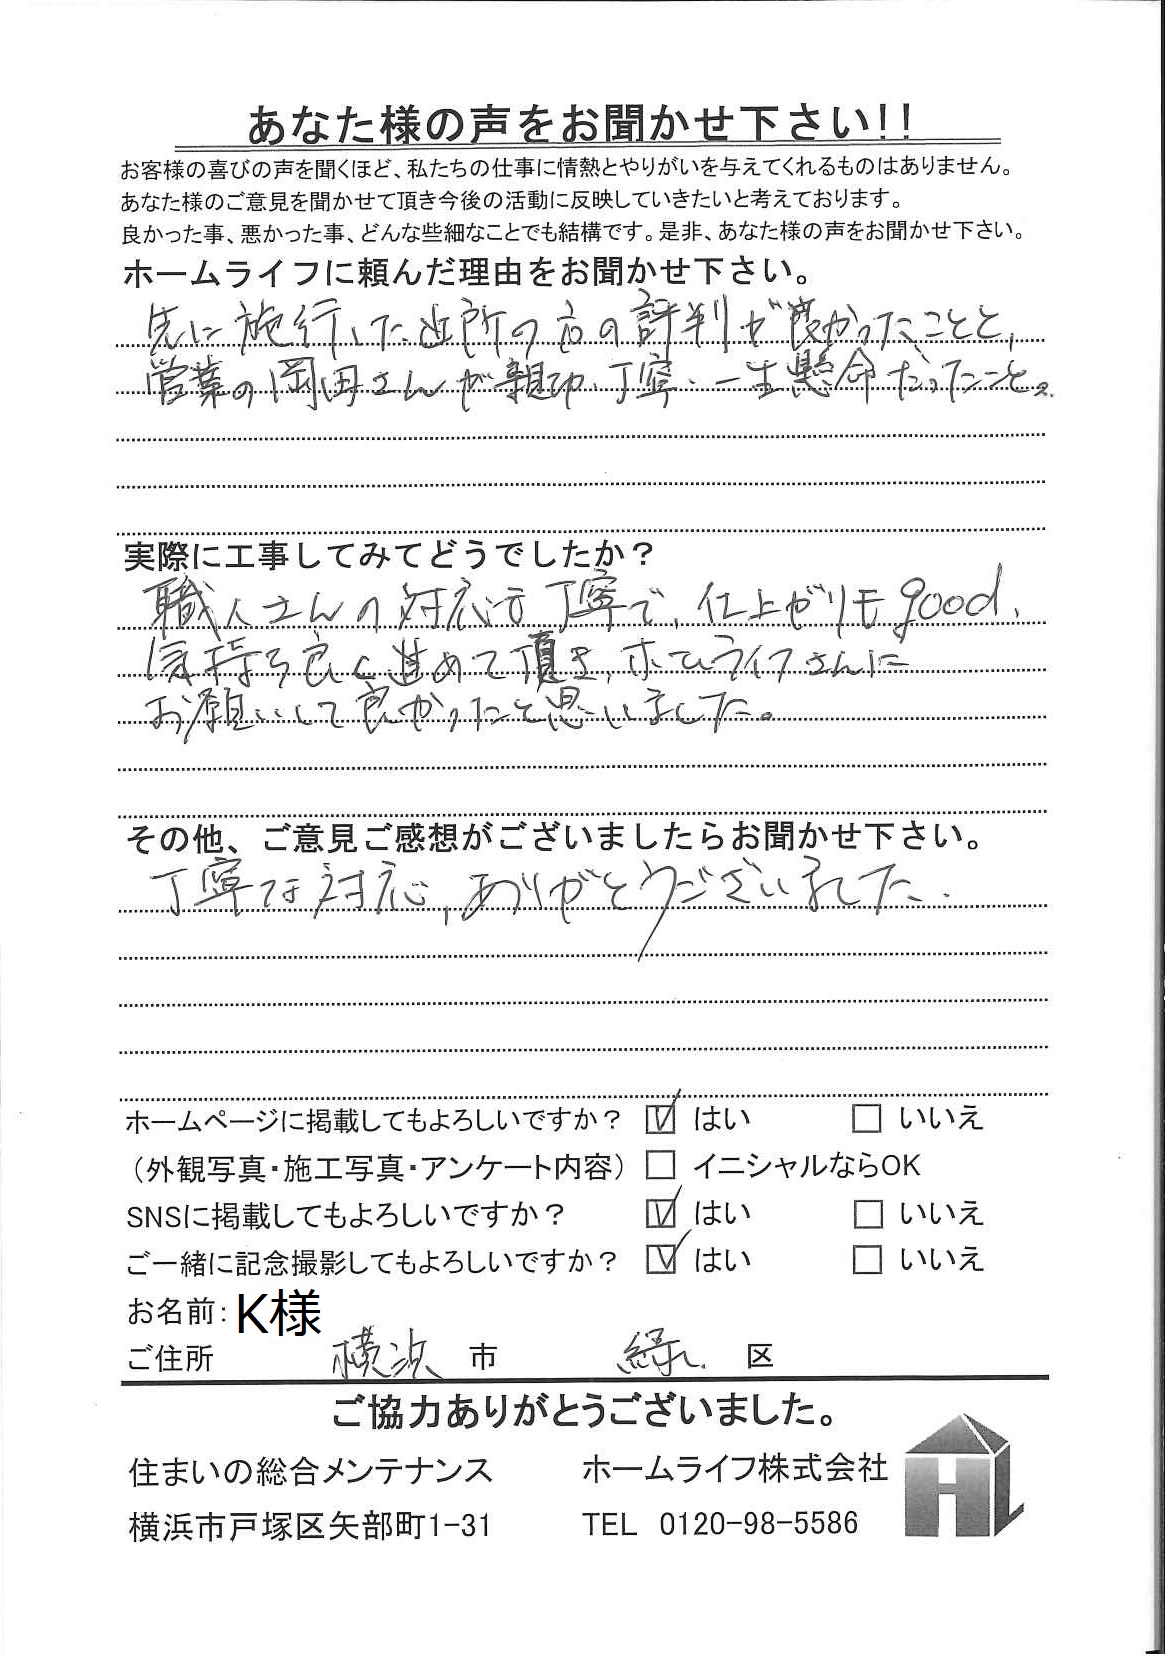 あなた様の声をお聞かせ下さい!!
お客様の喜びの声を聞くほど、私たちの仕事に情熱とやりがいを与えてくれるものはありません。
あなた様のご意見を聞かせて頂き今後の活動に反映していきたいと考えております。
良かった事、悪かった事、どんな些細なことでも結構です。是非、あなた様の声をお聞かせ下さい。
ホームライフに頼んだ理由をお聞かせ下さい。
先に施行した近所の方の評判が良かったことと、
営業の岡田さんが親切、丁寧、一生懸命だったこと。
実際に工事してみてどうでしたか？
職人さんの対応も丁寧で、仕上がりもgood、
気持ち良く進めて頂き、ホームライフさんに
お願いして良かったと思いました。
その他、ご意見ご感想がございましたらお聞かせ下さい。
丁寧な対応、ありがとうございました。
ホームページに掲載してもよろしいですか？ はい いいえ
（外観写真・施工写真・アンケート内容） イニシャルならOK
SNSに掲載してもよろしいですか？ はい いいえ
ご一緒に記念撮影してもよろしいですか？ はい いいえ
お名前：K様
ご住所 横浜 市 緑 区
ご協力ありがとうございました。
住まいの総合メンテナンス ホームライフ株式会社
横浜市戸塚区矢部町1-31 TEL 0120-98-5586
HL